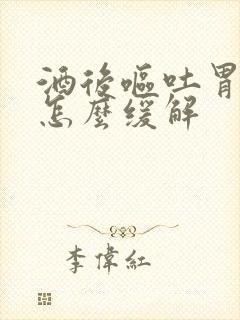 酒後嘔吐胃
怎麼緩解
李偉紅